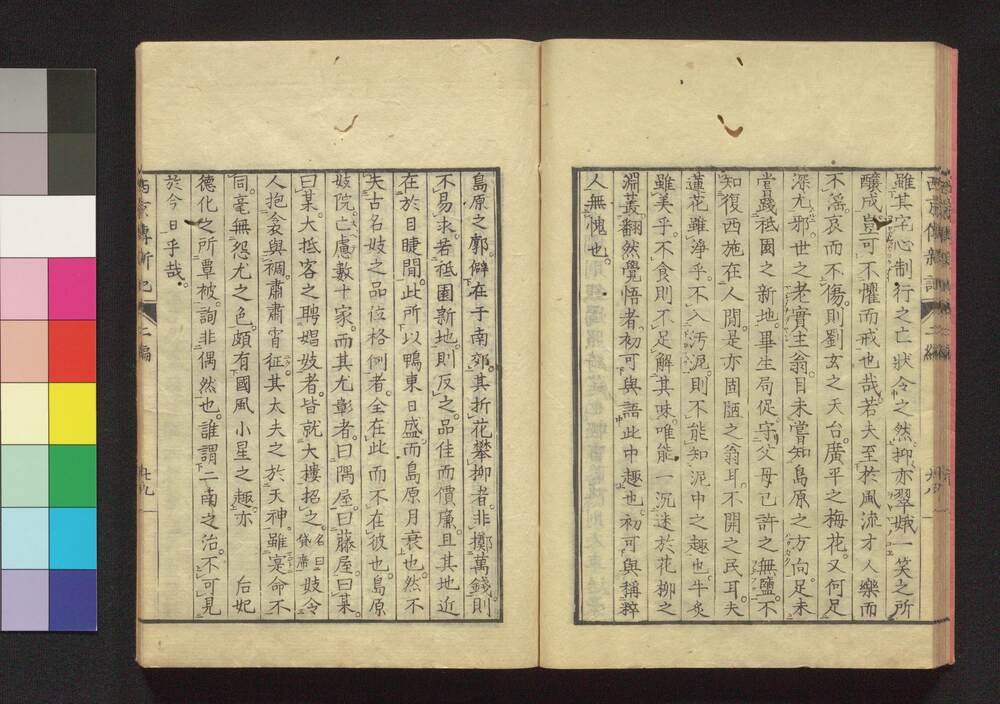 雖其宅心制行之亡狀令之然。抑亦翠娥一笑之所
釀成。豈可不懼而戒也哉。若夫至於風流才人樂而
不淫。哀而不傷。則劉玄之天台。廣平之梅花。又何足
深尤邪。世之老實主翁。目未嘗知島原之方向。足未
嘗踐祗園之新地。畢生局促。守父母已許之無鹽。不
知復西施在人間。是亦固陋之翁耳。不開之民耳。夫
蓮花雖淨乎。不入汚泥。則不能知泥中之趣也。牛炙
雖美乎。不食則不足解其味。唯能一沉迷於花柳之
淵叢。翻然覺悟者。初可與語此中趣也。初可與稱粹
人無愧也。
西京傳新記 二編 廿八
島原之廓。僻在于南郊。其折花攀柳者。非擲萬錢。則
不易求。若祗園新地。則反之。品佳而價廉。且其地近
在於目睫間。此所以鴨東日盛。而島原月衰也。然不
失古名妓之品位格例者。全在此而不在彼也。島原
妓院。亡慮數十家。而其尤彰者。曰隅屋。曰藤屋。曰某。
曰某。大抵客之聘娼妓者。皆就大樓招之。名曰貸席 妓令
人抱衾與裯。肅肅宵征。其太夫之於天神。雖寔命不
同。毫無怨尤之色。頗有國風小星之趣。亦 后妃
德化之所覃被。詢非偶然也。誰謂二南之治。不可見
於今日乎哉。
西京傳新記 二編 廿九